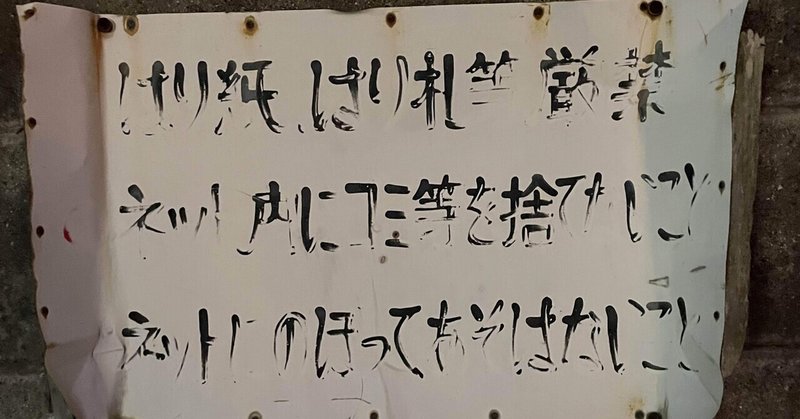 はり紙 はり札等 厳禁
ネット内にゴミ等を捨てないこと
ネットにのぼってあそばないこと